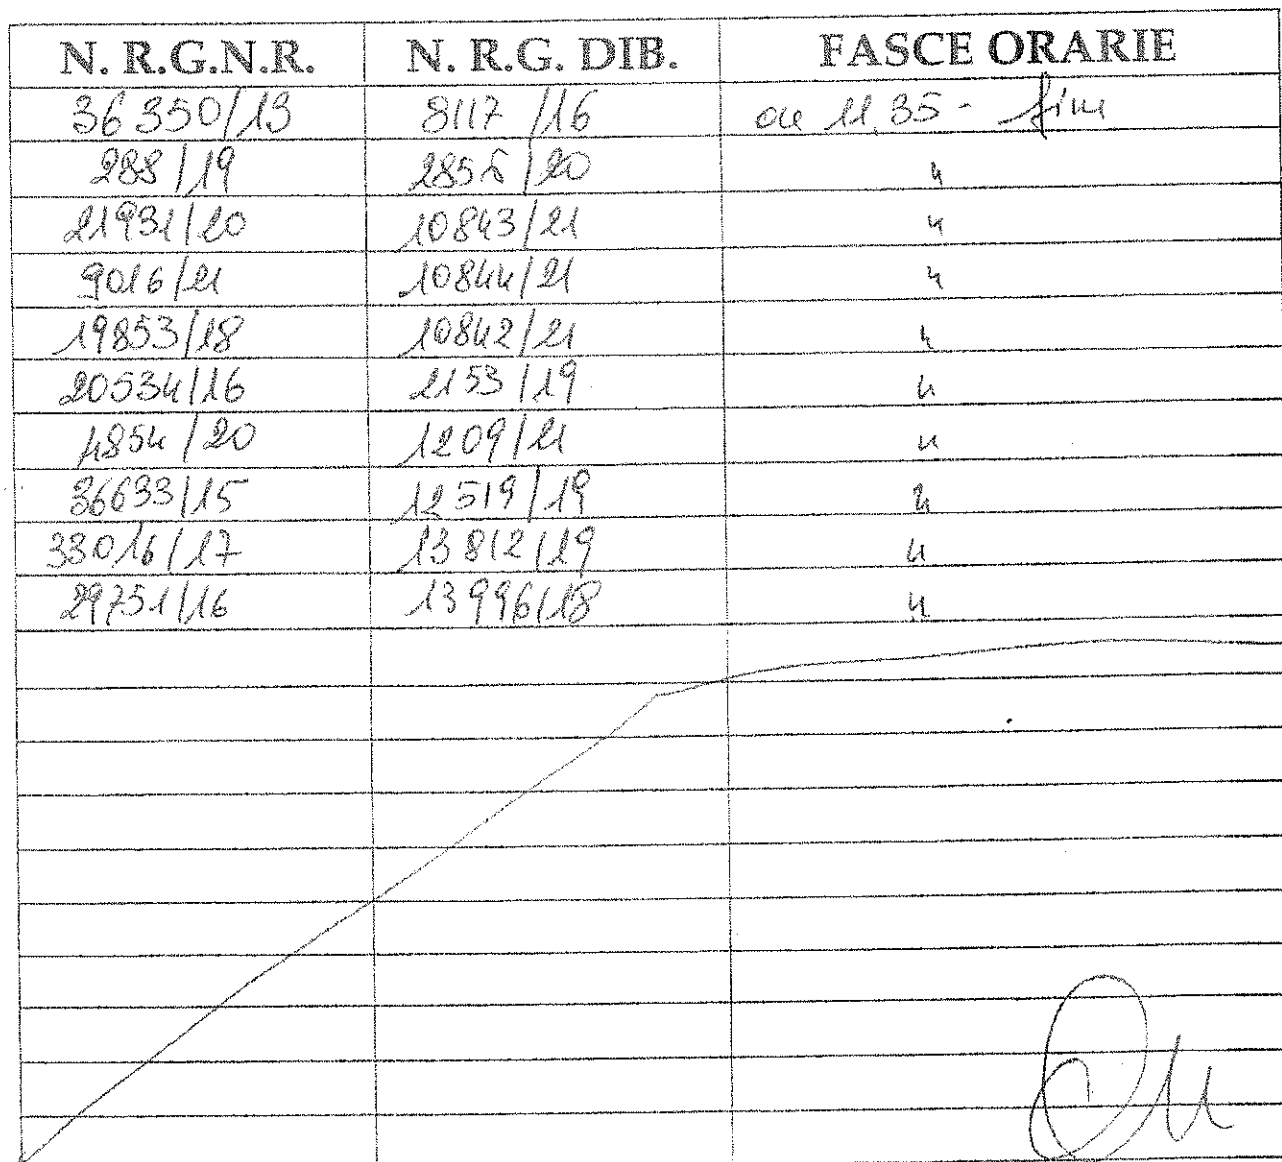 N. R.G.N.R. N. R.G. DIB. FASCE ORARIE
36350/13 8117/16 ore 11,35 - fine
288/19 /20 "
21931/20 10843/21 "
9016/21 10844/21 "
19853/18 10842/21 "
20534/16 2153/19 "
4854/20 1209/21 "
36633/15 12519/19 "
33016/17 13812/19 "
29751/16 13996/18 "